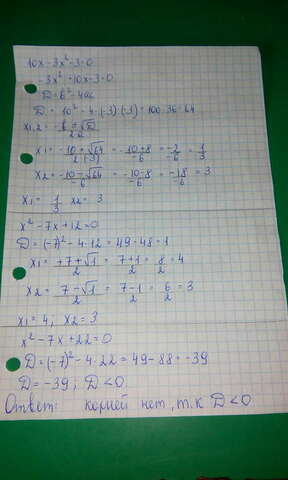 10x-3x²-3=0
-3x²+10x-3=0
D=b²-4ac
D=10²-4·(-3)·(-3)=100-36=64
x1,2=-b±√D/2a
x1=-10+√64/2·(-3)=-10+8/-6=-2/-6=1/3
x2=-10-√64/-6=-10-8/-6=-18/-6=3
x1=1/3 x2=3
x²-7x+12=0
D=(-7)²-4·12=49-48=1
x1=+7+√1/2=7+1/2=8/2=4
x2=7-√1/2=7-1/2=6/2=3
x1=4; x2=3
x²-7x+22=0
D=(-7)²-4·22=49-88=-39
D=-39; D<0
Ответ: корней нет, т.к D<0